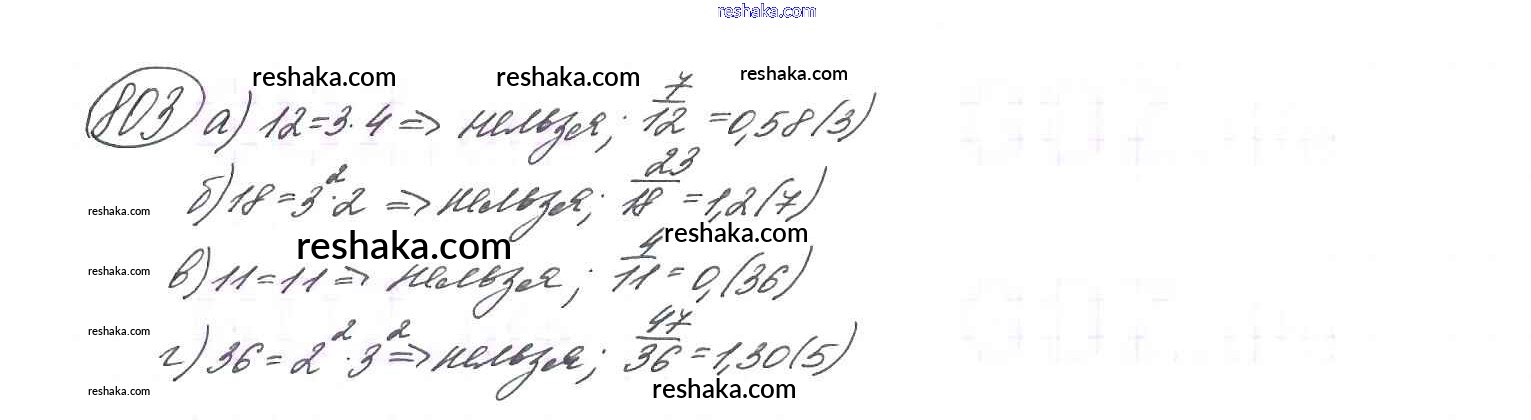 reshaka.com
reshaka.com reshaka.com reshaka.com
803 а) 12=3·4 => нельзя; 7/12 =0,58(3)
б) 18=3²·2 => нельзя; 23/18 =1,2(7)
reshaka.com
reshaka.com reshaka.com
в) 11=11 => нельзя; 4/11 = 0,(36)
reshaka.com
reshaka.com
г) 36=2²·3² => нельзя; 47/36 =1,30(5)
reshaka.com reshaka.com